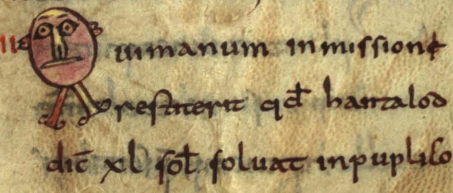 Qui manum inmissione
restiterit qd̄ hantalod
dic̄ xl sol̄ soluat inpuplico